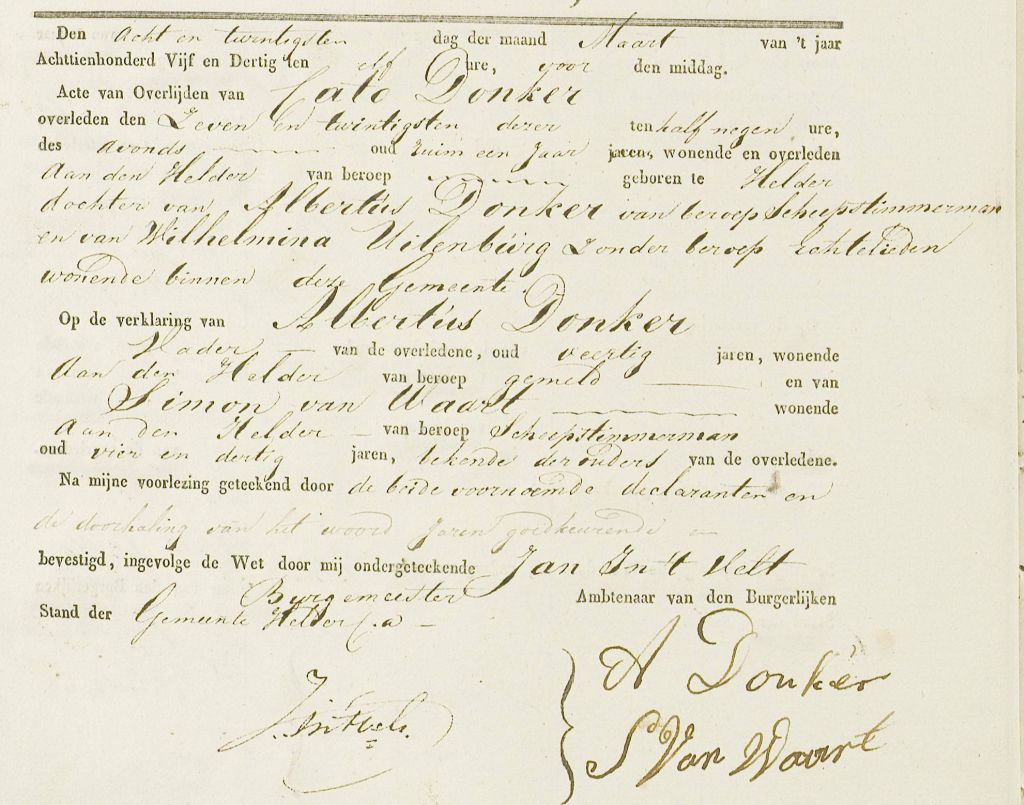 Den Acht en twintigsten dag der maand Maart van 't jaar
Achttienhonderd Vijf en Dertig ten elf ure, voor den middag.
Acte van Overlijden van Cato Donker
overleden den Zeven en twintigsten dezer ten half negen ure,
des avonds oud ruim een Jaar jaren, wonende en overleden
Aan den Helder van beroep geboren te Helder
dochter van Albertus Donker van beroep Scheepstimmerman
en van Wilhelmina Uilenburg Zonder beroep Echtelieden
wonende binnen deze Gemeente.
Op de verklaring van Albertus Donker
Vader van de overledene, oud veertig jaren, wonende
Aan den Helder van beroep gemeld en van
Simon van Waart wonende
Aan den Helder van beroep Scheepstimmerman
oud vier en dertig jaren, bekende der ouders van de overledene.
Na mijne voorlezing geteekend door de beide voornoemde declaranten en
de doorhaling van het woord Jaren goedkeurende en
bevestigd, ingevolge de Wet door mij ondergeteekende Jan In 't Velt
Burgemeester Ambtenaar van den Burgerlijken
Stand der Gemeente Helder C.a
A Donker
J. In 't Velt.
S Van Waart